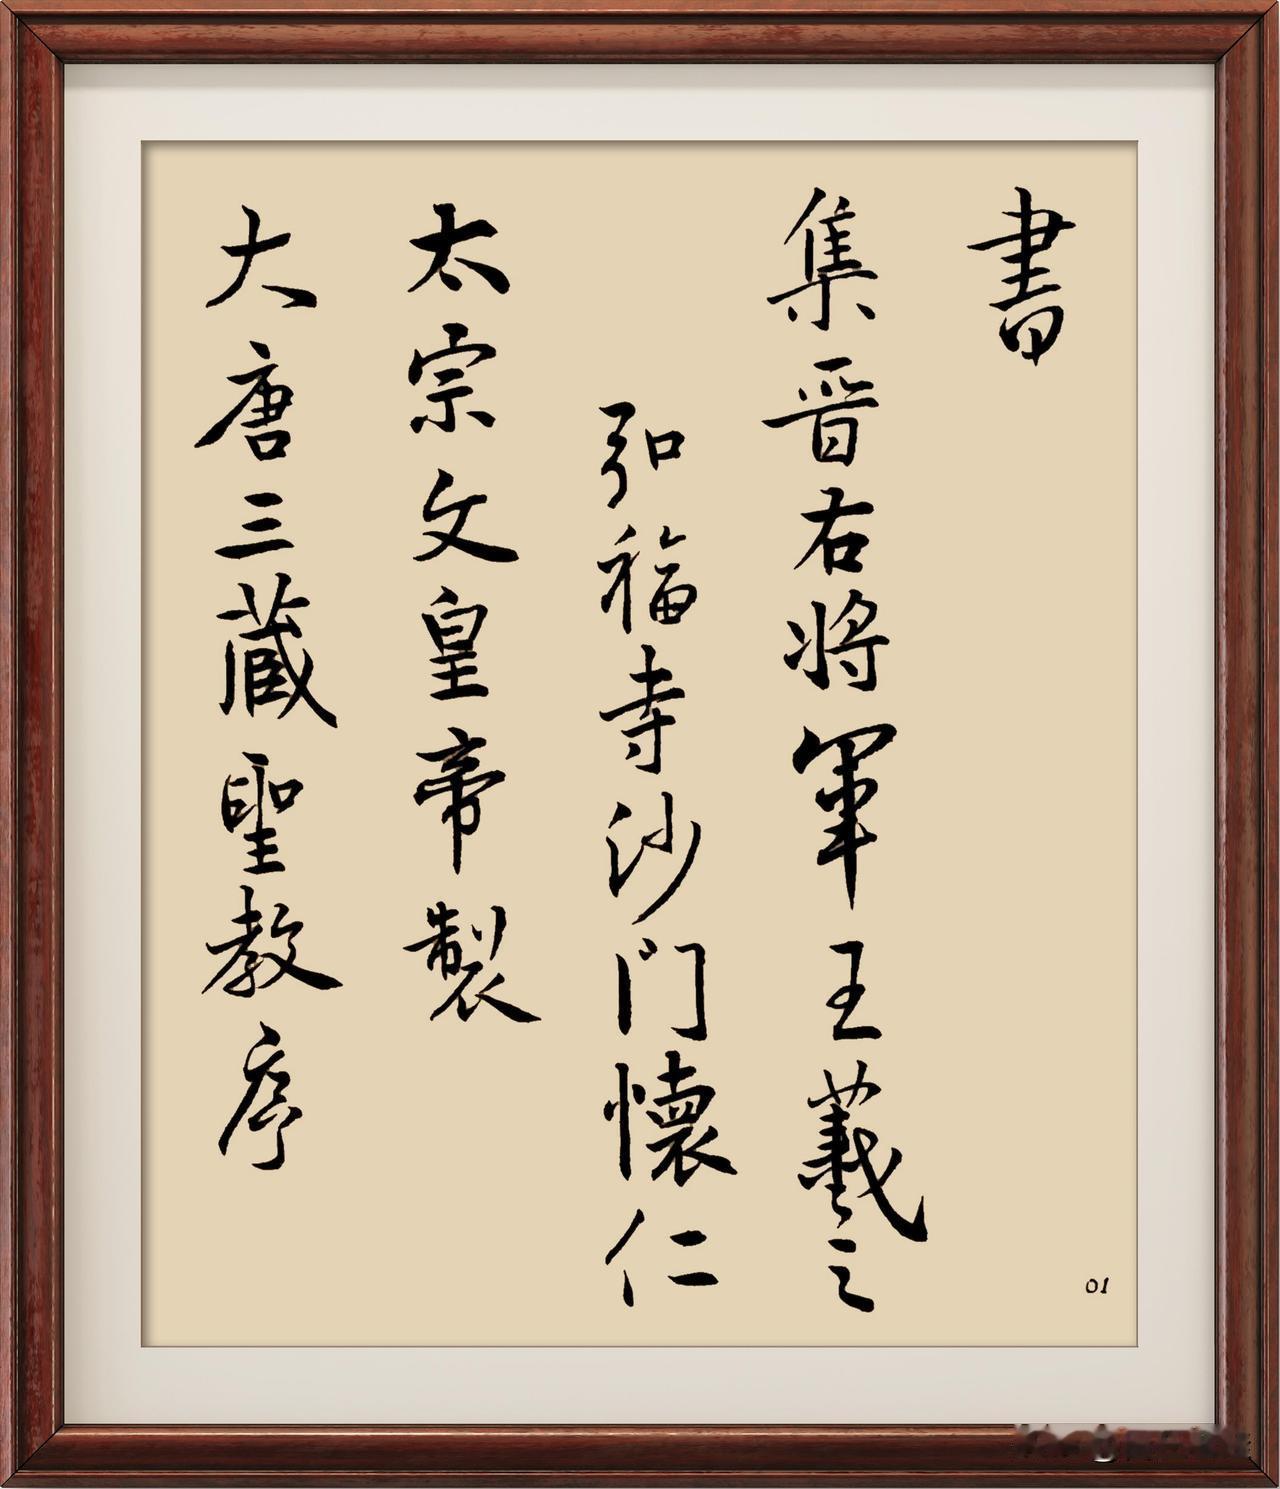 大唐三藏聖教序
太宗文皇帝製
弘福寺沙門懷仁
集晋右将軍王羲之
書
01